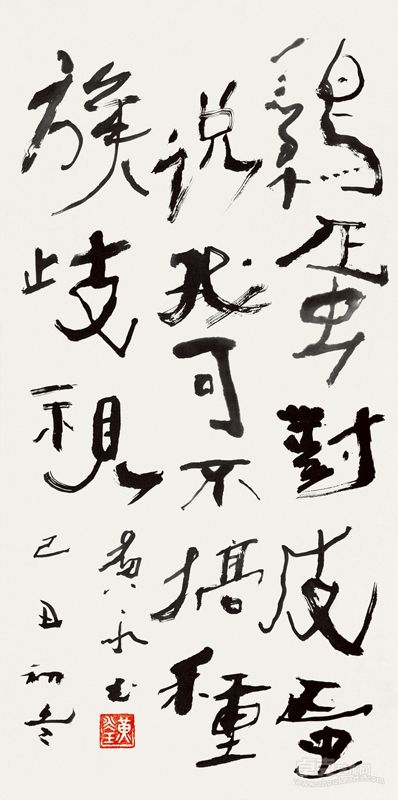 鷄蛋對皮蛋
说我可不搞種
族歧視
黄永玉
己丑初冬